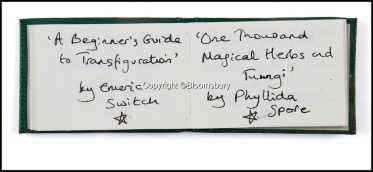 'A Beginner's Guide
to Transfiguration'
by Emeric
Switch
'One Thousand
Magical Herbs and
Fungi'
by Phyllida
Spore
Copyright ©Bloomsbury